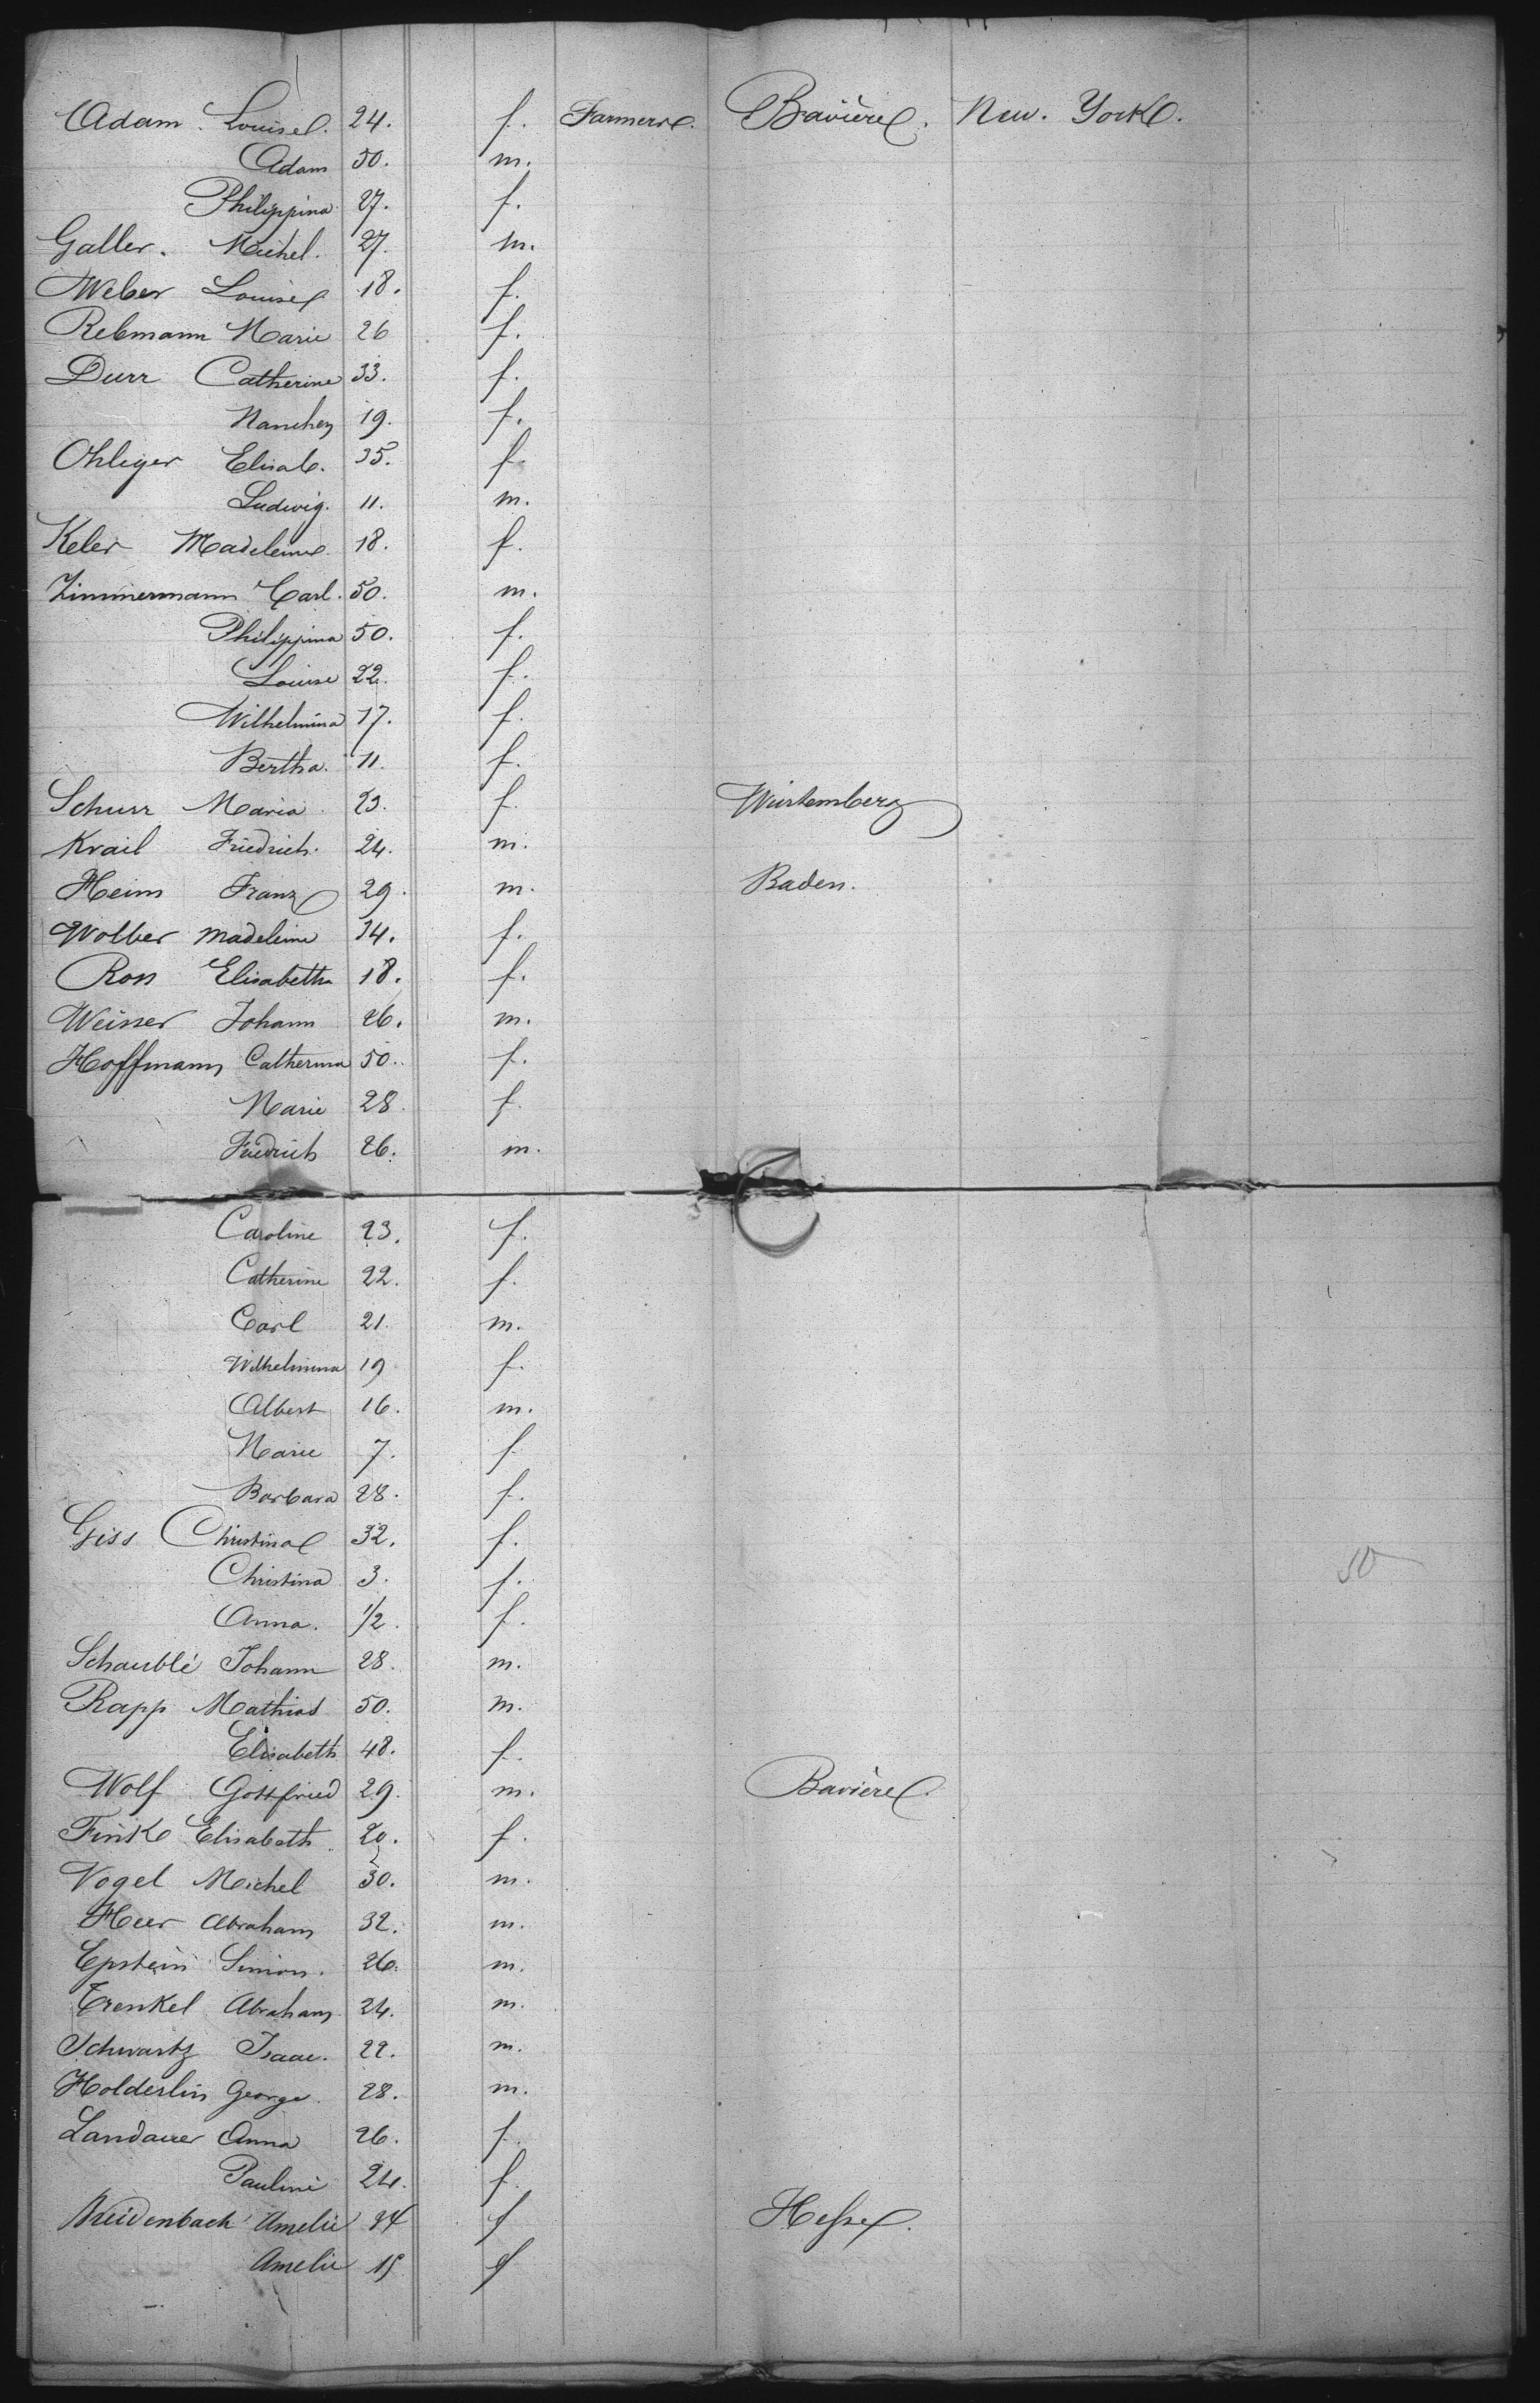 Adam. Louise. 24. f. Farmers. Bavière. New. York.
Adam 50. m.
Philippina 27. f.
Galler. Michel. 27. m.
Weber Louise 18. f.
Rebmann Marie 26 f.
Durr Catherine 33. f.
Nanchen 19. f.
Ohliger Elisab. 35. f.
Ludwig. 11. m.
Keler Madeleine 18. f.
Zimmermann Carl. 50. m.
Philippina 50. f.
Louise 22. f.
Wilhelmina 17. f.
Bertha. 11. f.
Schurr Maria 23. f. Würtemberg
Krail Friedrich. 24. m.
Heim Franz 29. m. Baden.
Wolber Madeleine 34. f.
Ross Elisabetha 18. f.
Weisser Johann 26. m.
Hoffmann Catherina 50. f.
Marie 28. f.
Friedrich 26. m.
Caroline 23. f.
Catherine 22. f.
Carl 21. m.
Wilhelmina 19 f.
Albert 16. m.
Marie 7. f.
Barbara 28. f.
Giss Christina 32. f.
Christina 3. f.
50
Anna. 1/2. f.
Schaublé Johann 28. m.
Rapp Mathias 50. m.
Elisabeth 48. f.
Wolf Gottfried 29. m. Bavière.
Fink Elisabeth. 20. f.
Vogel Michel 30. m.
Heer Abraham 32. m.
Epstein Simon. 26. m.
Trenkel Abraham 24. m.
Schwartz Isaac. 22. m.
Holderlin George. 28. m.
Landauer Anna 26. f.
Pauline 24. f.
Breidenbach Amelie 34 f Hesse.
Amelie 15 f